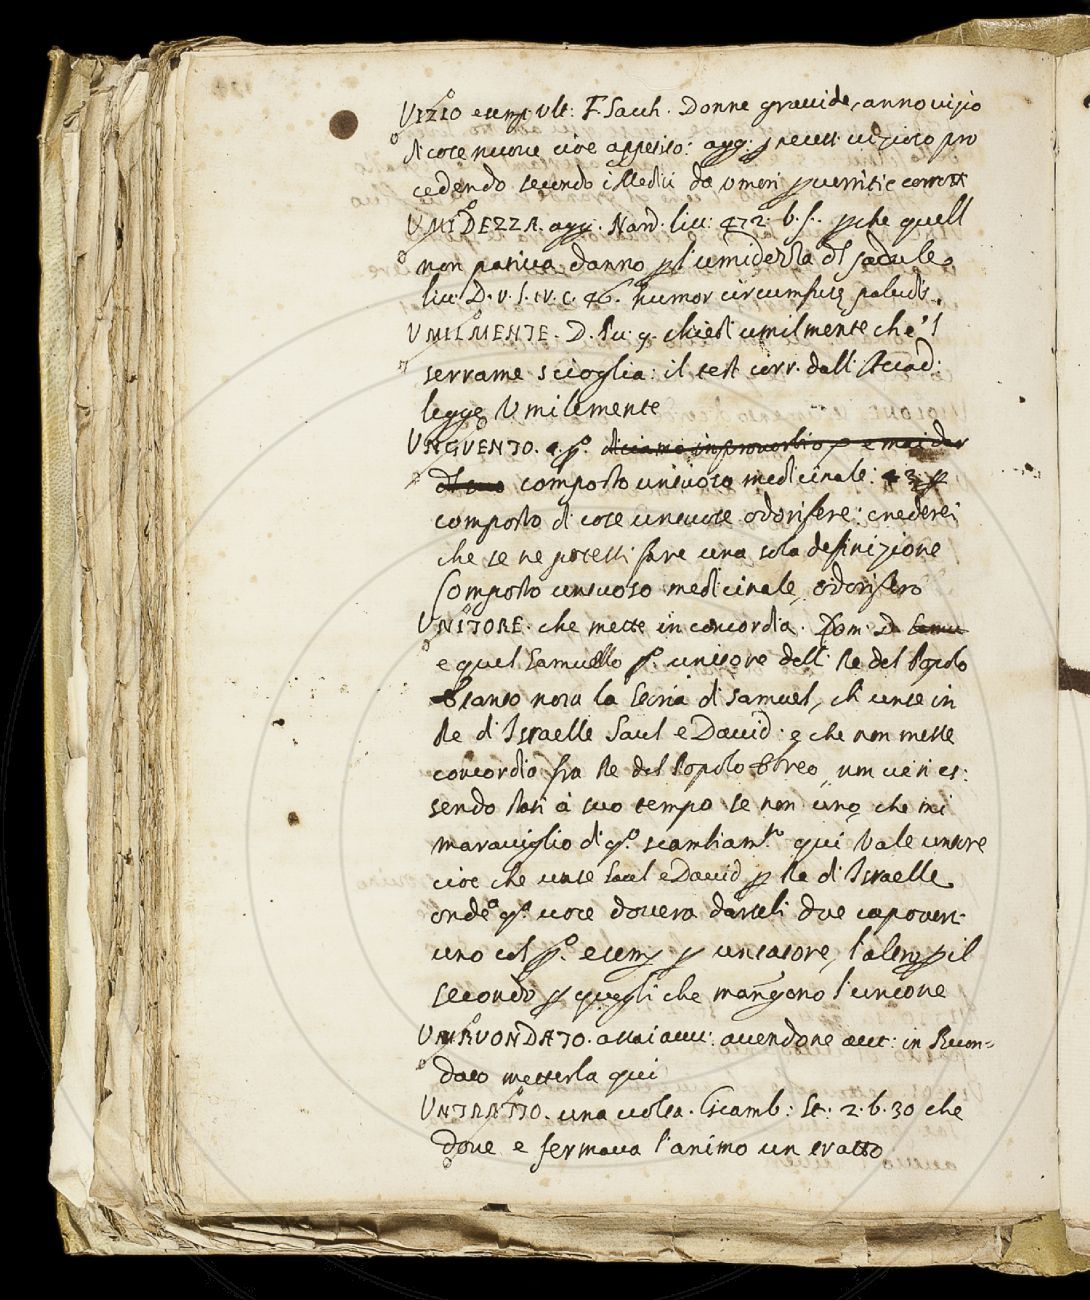 VIZIO esemp. ult: F. Sacch. Donne gravide, anno vizio
di cose nuove cioè appetito: agg: vizioso pro
cedendo secondo i Medici da umori corrott
VMIDEZZA. agg. Nard. liv: 472. b. f. pche quell
non pativa danno p l'umidezza
liv. D. V. l. IV. c. 46. humor circumfusę paludis.
VMILMENTE. D. Pu. 9. chiedi umilmente che 'l
serrame scioglia: il test corr. dall'Accad:
legge Umilemente
VNGVENTO. diciamo in proverbio
composto untuoso medicinale: p
composto di cose untuose odorifere: crederei
che se ne potessi fare una sola definizione
Composto untuoso medicinale, odorifero
VNITORE. che mette in concordia. Samu
e quel Samuello pº. unitore dell Re del Popolo
santo nota la Storia di Samuel, ch unse in
Re d'Israelle Saul e David: e che non messe
concordia fra Re del Popolo Ebreo, non vi es:
sendo stati à suo tempo se non uno, che mi
maraviglio di qº. scambiamto. qui Vale untore
cioè che unse Saul e David p Re d'Israelle
onde qª. voce dovera darseli due capovers:
uno col pº. esemp p unitore, l'altro p il
secondo p quegli che mangono l'unione
VNRVONDATO. assai avv: avendone avv: in Ruon=
dato metterla qui
VNTRATTO. una volta. Giamb: St: 2. b. 30 che
dove e fermava l'animo un tratto